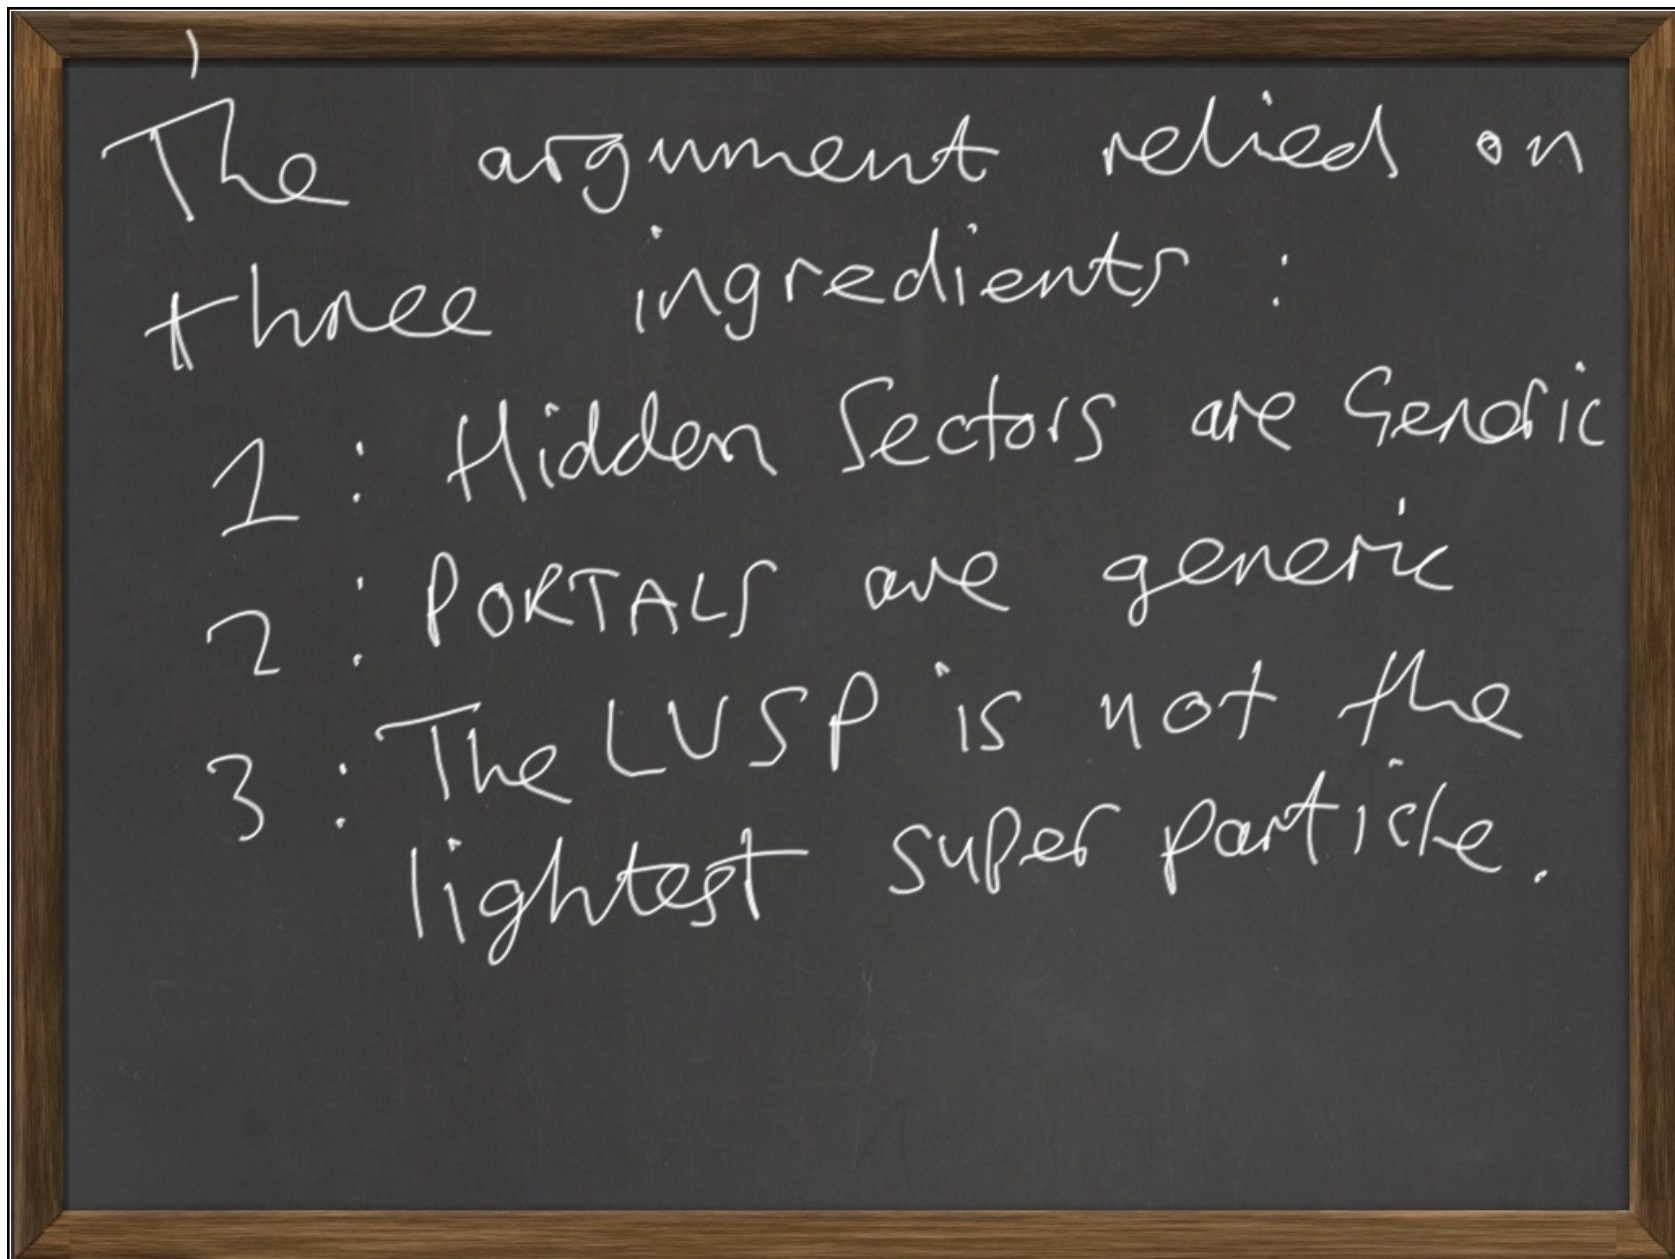 The argument relied on
three ingredients :
1 : Hidden Sectors are Generic
2 : PORTALS are generic
3 : The LVSP is not the
lightest super particle.